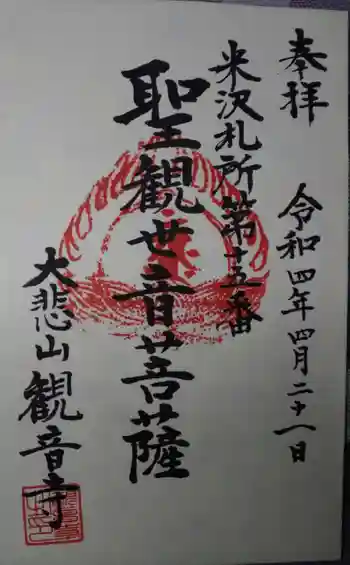 奉拝
令和四年四月二十一日
米沢札所第十五番
聖観世音菩薩
大悲山観音寺